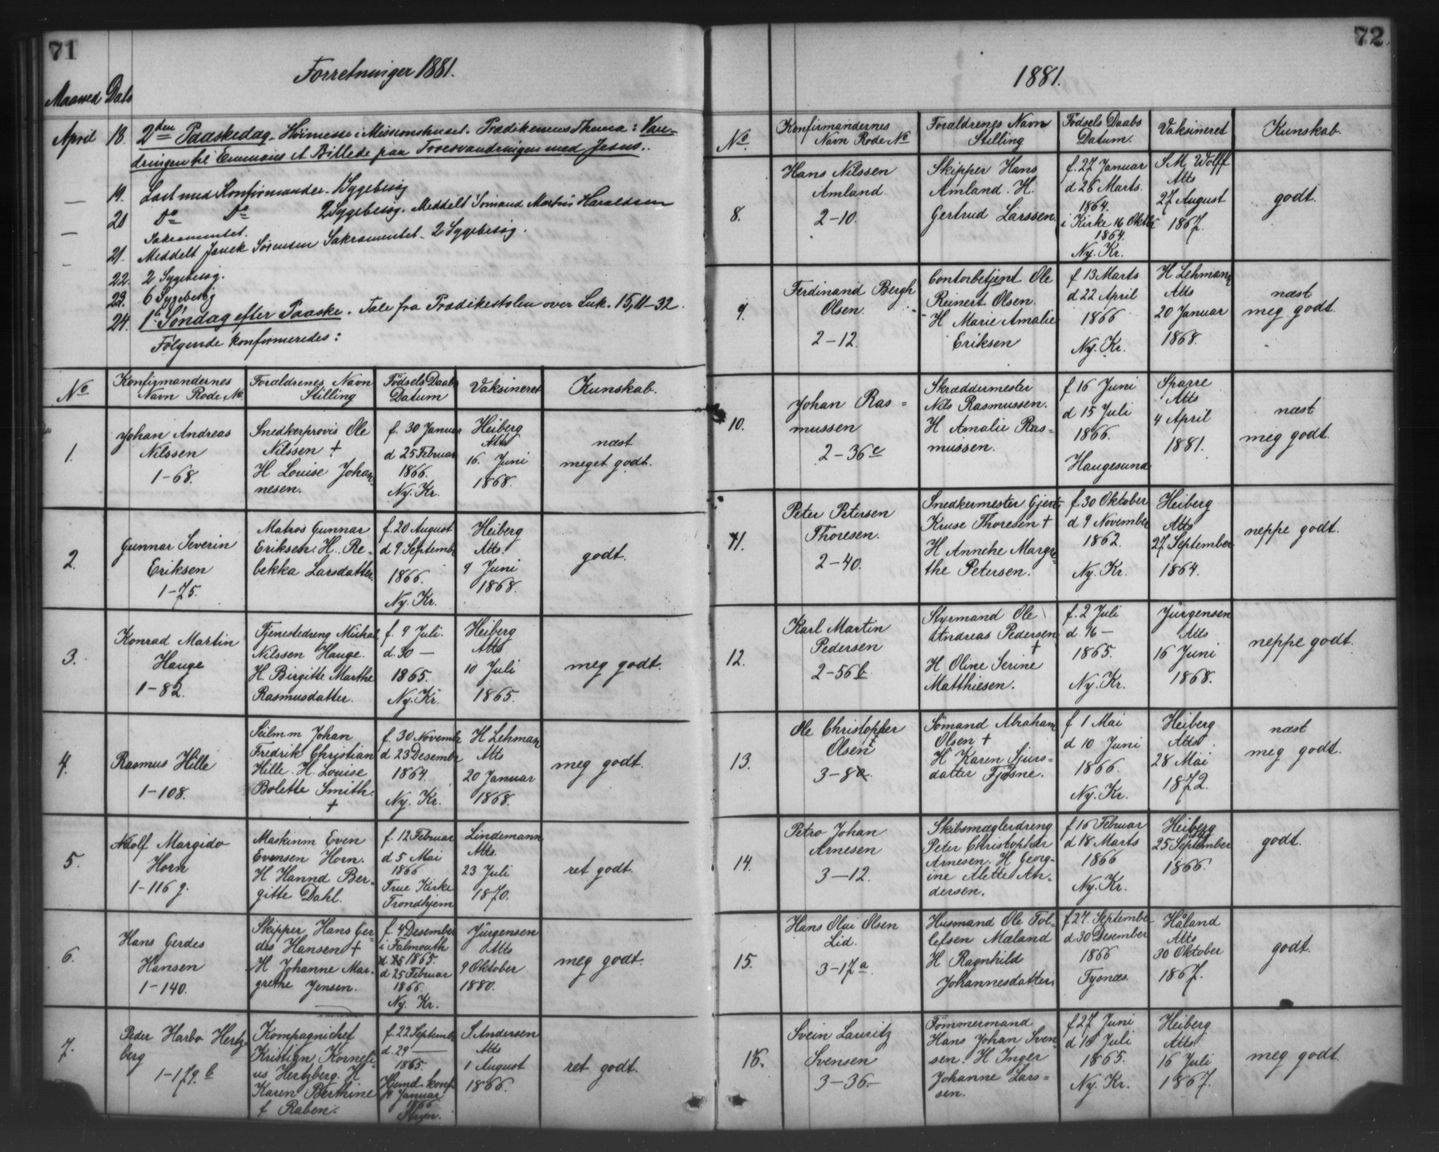 71
Forretninger 1881.
Maaned Dato
April 18. 2den Paaskedag. Høimesse i Missionshuset. Prædikenens Thema: Van-
dringen til Emmaus et Billede paa Troesvandringen med Jesus.
19. Læst med Konfirmander. 1 Sygebesøg
20 do do 2 Sygebesøg. Meddelt Sømand Martin Haraldsen
Sakramentet.
21. Meddelt Sørensen Sakramentet. 2 Sygebesøg.
22. 2 Sygebesøg.
23. 6 Sygebesøg
24. 1ste Søndag efter Paaske. Tale fra Prædikestolen over Luk. 15,11-32.
Følgende konfirmeredes:
No Konfirmandernes Navn Rode No Forældrenes Navn Stilling Fødsels Daabs Datum Vaksineret Kunskab.
1. Johan Andreas Nilssen 1-68.
Snedkerprovis Ole Nilssen + H Louise Johannesen.
f. 30 Januar d 25 Februar 1866. Ny. Kr.
Heiberg Atts 16. Juni 1868.
næst meget godt.
2. Gunnar Severin Eriksen 1-75.
Matros Gunnar Eriksen. H. Re-
bekka Larsdatter
f. 20 August d 9 Septemb 1866. Ny. Kr.
Heiberg Atts. 9 Juni 1868.
godt.
3. Konrad Martin Hauge 1-82.
Tjenestedreng Michal Nilssen Hauge.
H. Birgitte Marthe Rasmusdatter.
f. 9 Juli. d. 30 — 1865. Ny. Kr.
Heiberg Atts 10 Juli 1865.
meg godt.
4. Rasmus Hille 1-108.
Seilm m Johan Fredrik Christian
Hille. H Louise Bolette Smith. +
f. 30 Novembe d 23 Desember 1864. Ny. Kr.
H. Lehmann Atts 20 Januar 1868.
meg godt.
5. Adolf Margido Horn 1-116 g.
Maskinm Even Evensen Horn.
H Hannd Ber-
gitte Dahl.
f. 12 Februar d 5 Mai 1866 Frue Kirke Trondhjem
Lindemann Atts. 23 Juli 1870.
ret godt.
6. Hans Gerdes Hansen 1-140.
Skipper Hans Ger-
des Hansen + H Johanne Mar-
grethe Jensen.
f. 4 Desember i Falmouth 1865. d 25 Februar 1866. Ny. Kr.
Jürgensen Atts 9 Oktober 1880.
meg godt.
7. Peder Harbo Hertz-
berg 1-179 b
Kompagnichef Kristian Korneli-
us Hertzberg. H Karen Berthine f Raben.
f. 22 Septemb d. 29 — 1865. Januar 1866
S. Andersen Atts 1 August 1866
ret godt.
72
1881.
No. Konfirmandernes Navn Rode No Forældrenes Navn Stilling Fødsels Daabs Datum. Vaksineret Kunskab.
8. Hans Nilssen Amland 2-10.
Skipper Hans Amland. H. Gertrud Larssen
f. 27 Januar d 26 Marts. 1864. i Kirke 16 Oktbr 1864. Ny. Kr.
S. M. Wolff Atts 27 August 1867.
godt.
9. Ferdinand Bergh Olsen. 2-12.
Contorbetjent Ole Reinert Olsen.
H Marie Amalie Eriksen
f 13 Marts d 22 April 1866 Ny. Kr.
H Lehmann Atts 20 Januar 1868.
næst meg godt.
10. Johan Ras-
mussen 2-36c
Skræddermester Nils Rasmussen.
H Amalie Ras-
mussen.
f 16 Juni d 15 Juli 1866. Haugesund
Sparre Atts 4 April 1881.
næst meg godt.
11. Peter Petersen Thoresen. 2-40.
Snedkermester Gjert Kruse Thoresen +
H Anneke Margre-
the Petersen.
f. 30 Oktober d 9 November 1862. Ny. Kr.
Heiberg Atts 27 September 1864.
neppe godt.
12. Karl Martin Pedersen 2-56b
Styrmand Ole Andreas Pedersen +
H Oline Serine Matthiesen.
f. 2 Juli d — 1865. Ny. Kr.
Jürgensen Atts 16 Juni 1868.
neppe godt.
13. Ole Christopher Olsen 3-8a.
Sømand Abraham Olsen +
H Karen Sjurs-
datter Fjøsne.
f 1 Mai d 10 Juni 1866. Ny. Kr.
Heiberg Atts. 28 Mai 1872.
næst meg godt.
14. Petro Johan Arnesen 3-12.
Skibsmæglerdreng Peter Christopher
Arnesen. H Georg-
ine Alette An-
dersen.
f 16 Februar d 18 Marts 1866 Ny. Kr.
Heiberg 25 September 1866.
godt.
15. Hans Olai Olsen Lid. 3-17a.
Husmand Ole Tol-
lefsen Mæland
H Ragnhild Johannesdatter.
f 27. Septembe d 30 Desember 1866 Tysnæs.
Håland Atts 30 Oktober 1867.
godt.
16. Svein Lauritz Svensen 3-36-
Tømmermand Hans Johan Sven-
sen. H Inger Johanne Lars-
sen.
f 27 Juni d 16 Juli 1865. Ny. Kr.
Heiberg Atts 16 Juli 1867.
meg godt.